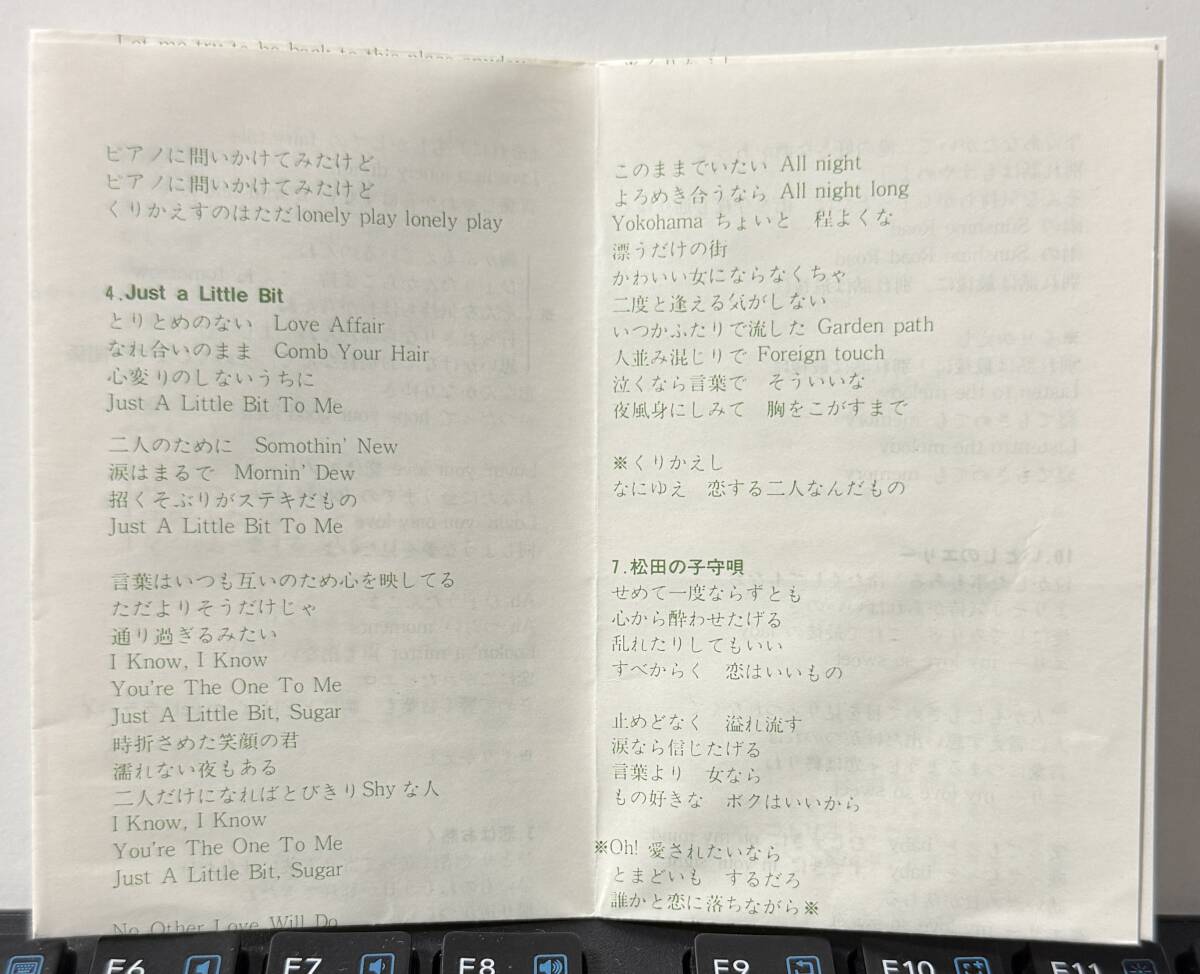 Let me try to be back to this place anyday
ピアノに問いかけてみたけど
ピアノに問いかけてみたけど
くりかえすのはただlonely play lonely play
4.Just a Little Bit
とりとめのない Love Affair
なれ合いのまま Comb Your Hair
心変りのしないうちに
Just A Little Bit To Me
二人のために Somothin' New
涙はまるで Mornin' Dew
招くそぶりがステキだもの
Just A Little Bit To Me
言葉はいつも互いのため心を映してる
ただよりそうだけじゃ
通り過ぎるみたい
I Know, I Know
You're The One To Me
Just A Little Bit, Sugar
時折さめた笑顔の君
濡れない夜もある
二人だけになればとびきりShyな人
I Know, I Know
You're The One To Me
Just A Little Bit, Sugar
No Other Love Will Do
※くりかえし
このままでいたい All night
よろめき合うなら All night long
Yokohama ちょいと 程よくな
漂うだけの街
かわいい女にならなくちゃ
二度と逢える気がしない
いつかふたりで流した Garden path
人並み混じりで Foreign touch
泣くなら言葉で そういいな
夜風身にしみて 胸をこがすまで
※くりかえし
なにゆえ 恋する二人なんだもの
7.松田の子守唄
せめて一度ならずとも
心から酔わせたげる
乱れたりしてもいい
すべからく 恋はいいもの
止めどなく 溢れ流す
涙なら信じたげる
言葉より 女なら
もの好きな ボクはいいから
※Oh! 愛されたいなら
とまどいも するだろ
誰かと恋に落ちながら※
F6
F7
F8
F9
F10
F11